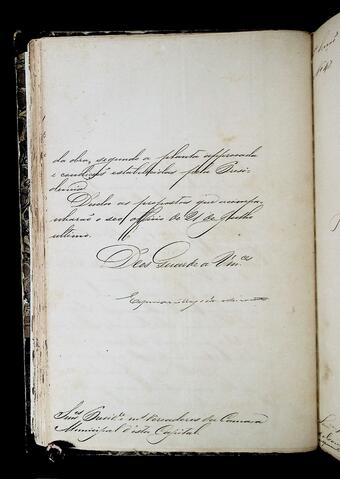 da obra, segundo a planta approvada
e condições estabelecidas pela Presi-
dencia.
Devolvo as propostas que acompa-
nharão o seo officio de 21 de Junho
ultimo.
Deos Guarde a Vm.ces
Snr.s Presid.e e m.s Vereadores da Camara
Municipal d'esta Capital.